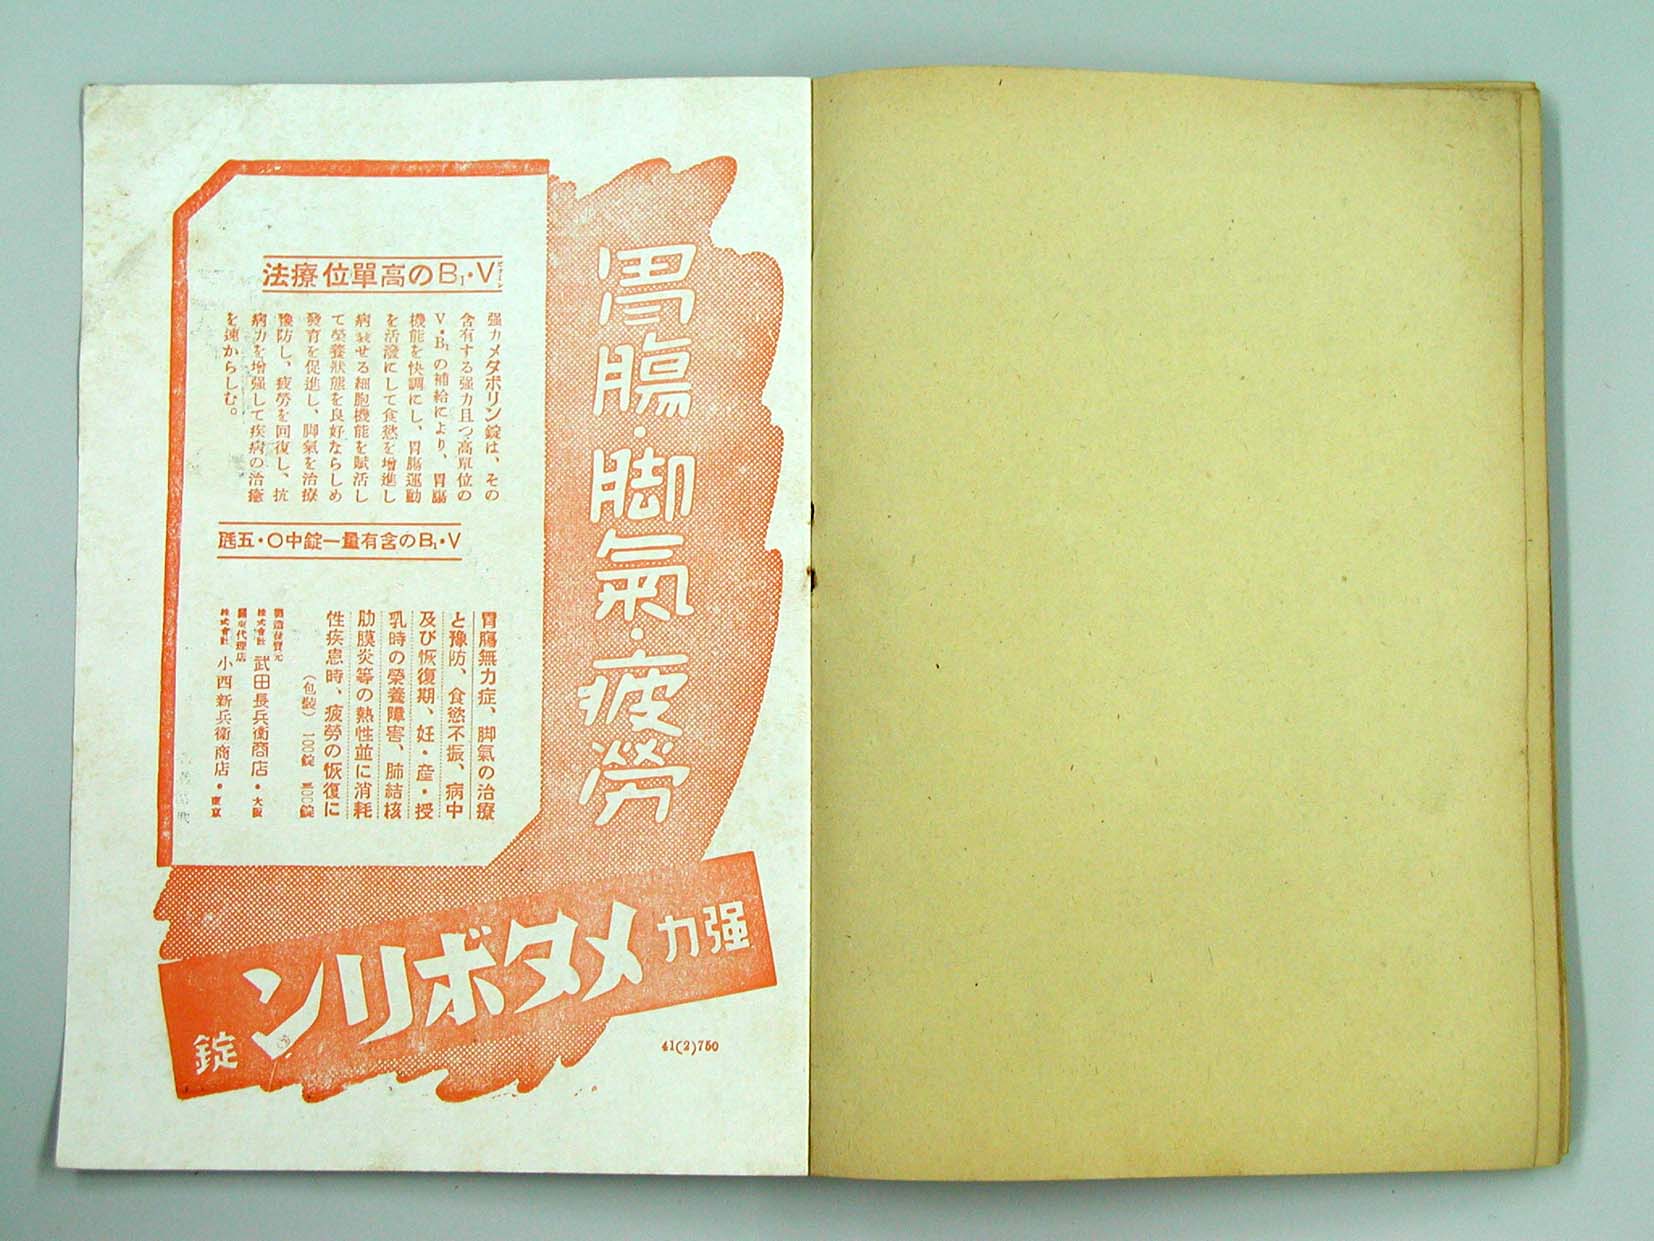 胃腸・脚氣・疲勞
V・B₁の高單位療法
强力メタボリン錠は、その
含有する强力且つ高單位の
V・B₁の補給により、胃腸
機能を快調にし、胃腸運動
を活潑にして食慾を增進し
病衰せる細胞機能を賦活し
て榮養狀態を良好ならしめ
發育を促進し、脚氣を治療
豫防し、疲勞を回復し、抗
病力を增强して疾病の治癒
を速からしむ。
V・B₁の含有量一錠中〇・五瓱
胃腸無力症、脚氣の治療
と豫防、食慾不振、病中
及び恢復期、妊・産・授
乳時の榮養障害、肺結核
肋膜炎等の熱性並に消耗
性疾患時、疲勞の恢復に
(包裝) 一〇〇錠 三〇〇錠
製造發賣元
株式會社 武田長兵衞商店・大阪
關東代理店
株式會社 小西新兵衞商店・東京
强力メタボリン錠
41(2)750